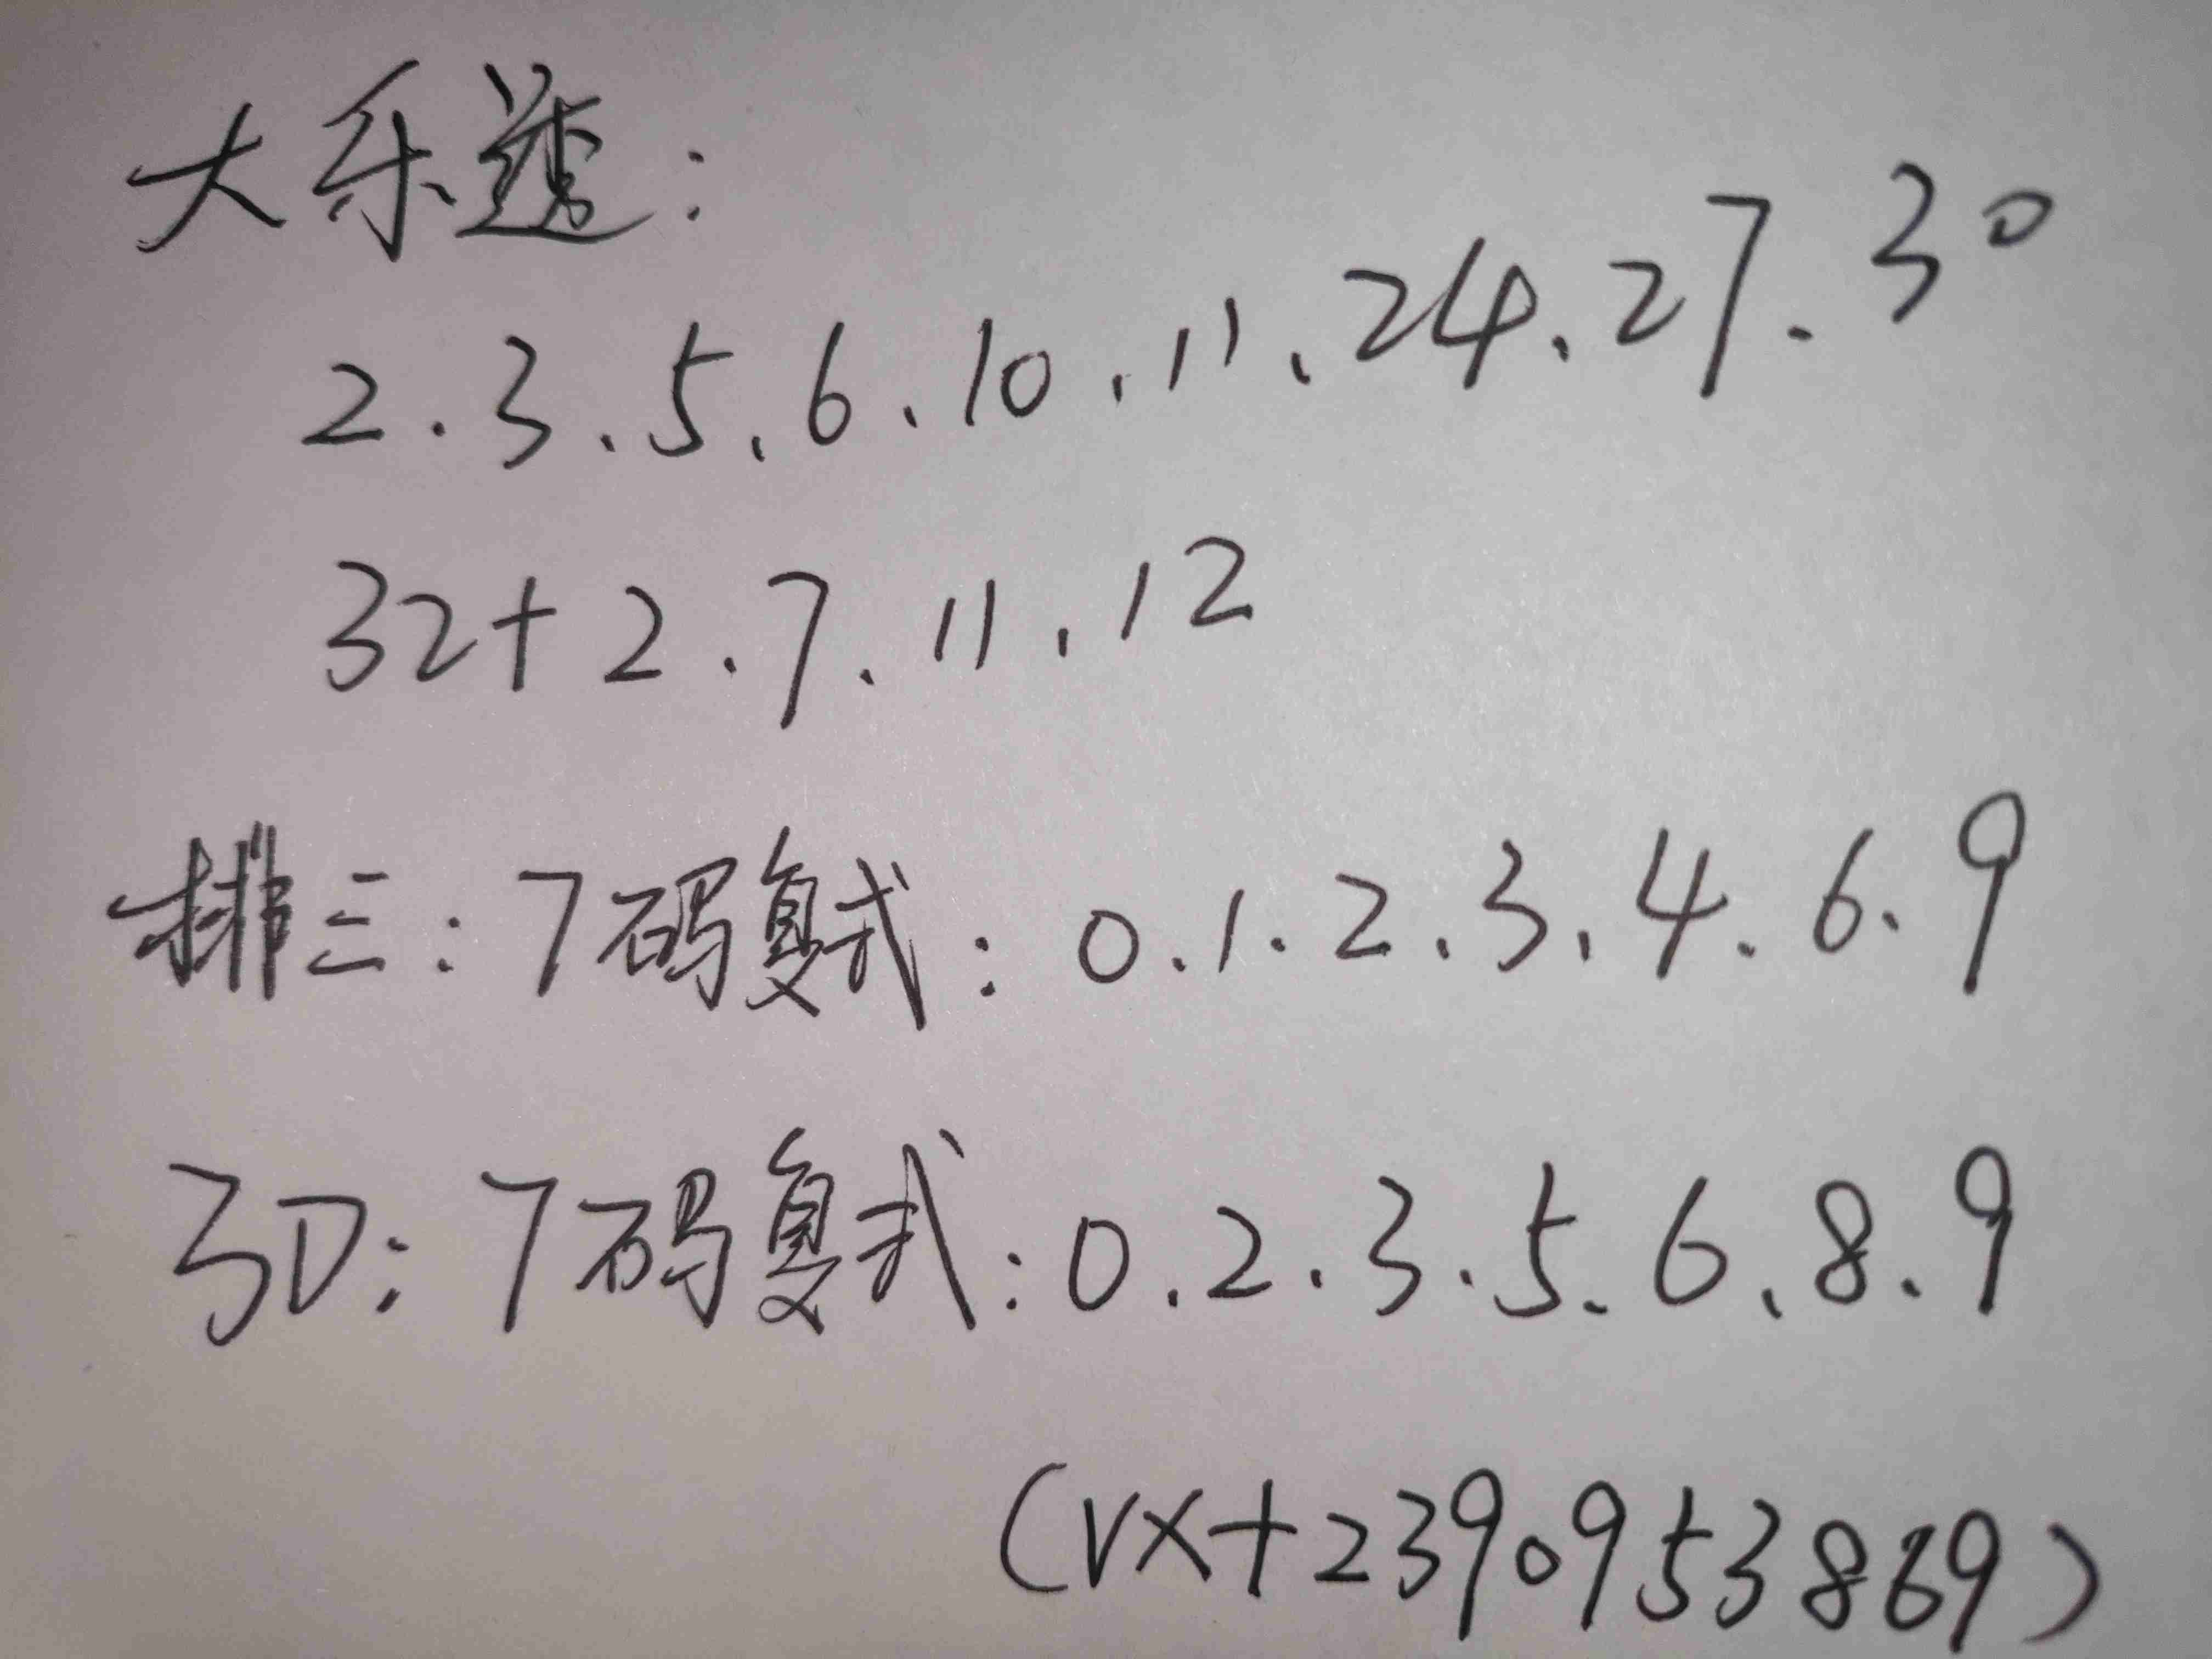 大乐透:
2.3、5、6、10、11、24、27.30
32+2.7、11、12
排三:7码复式:0.1.2.3.4.6.9
3D:7码复式:0.2.3.5.6.8.9
(VX+2390953869)